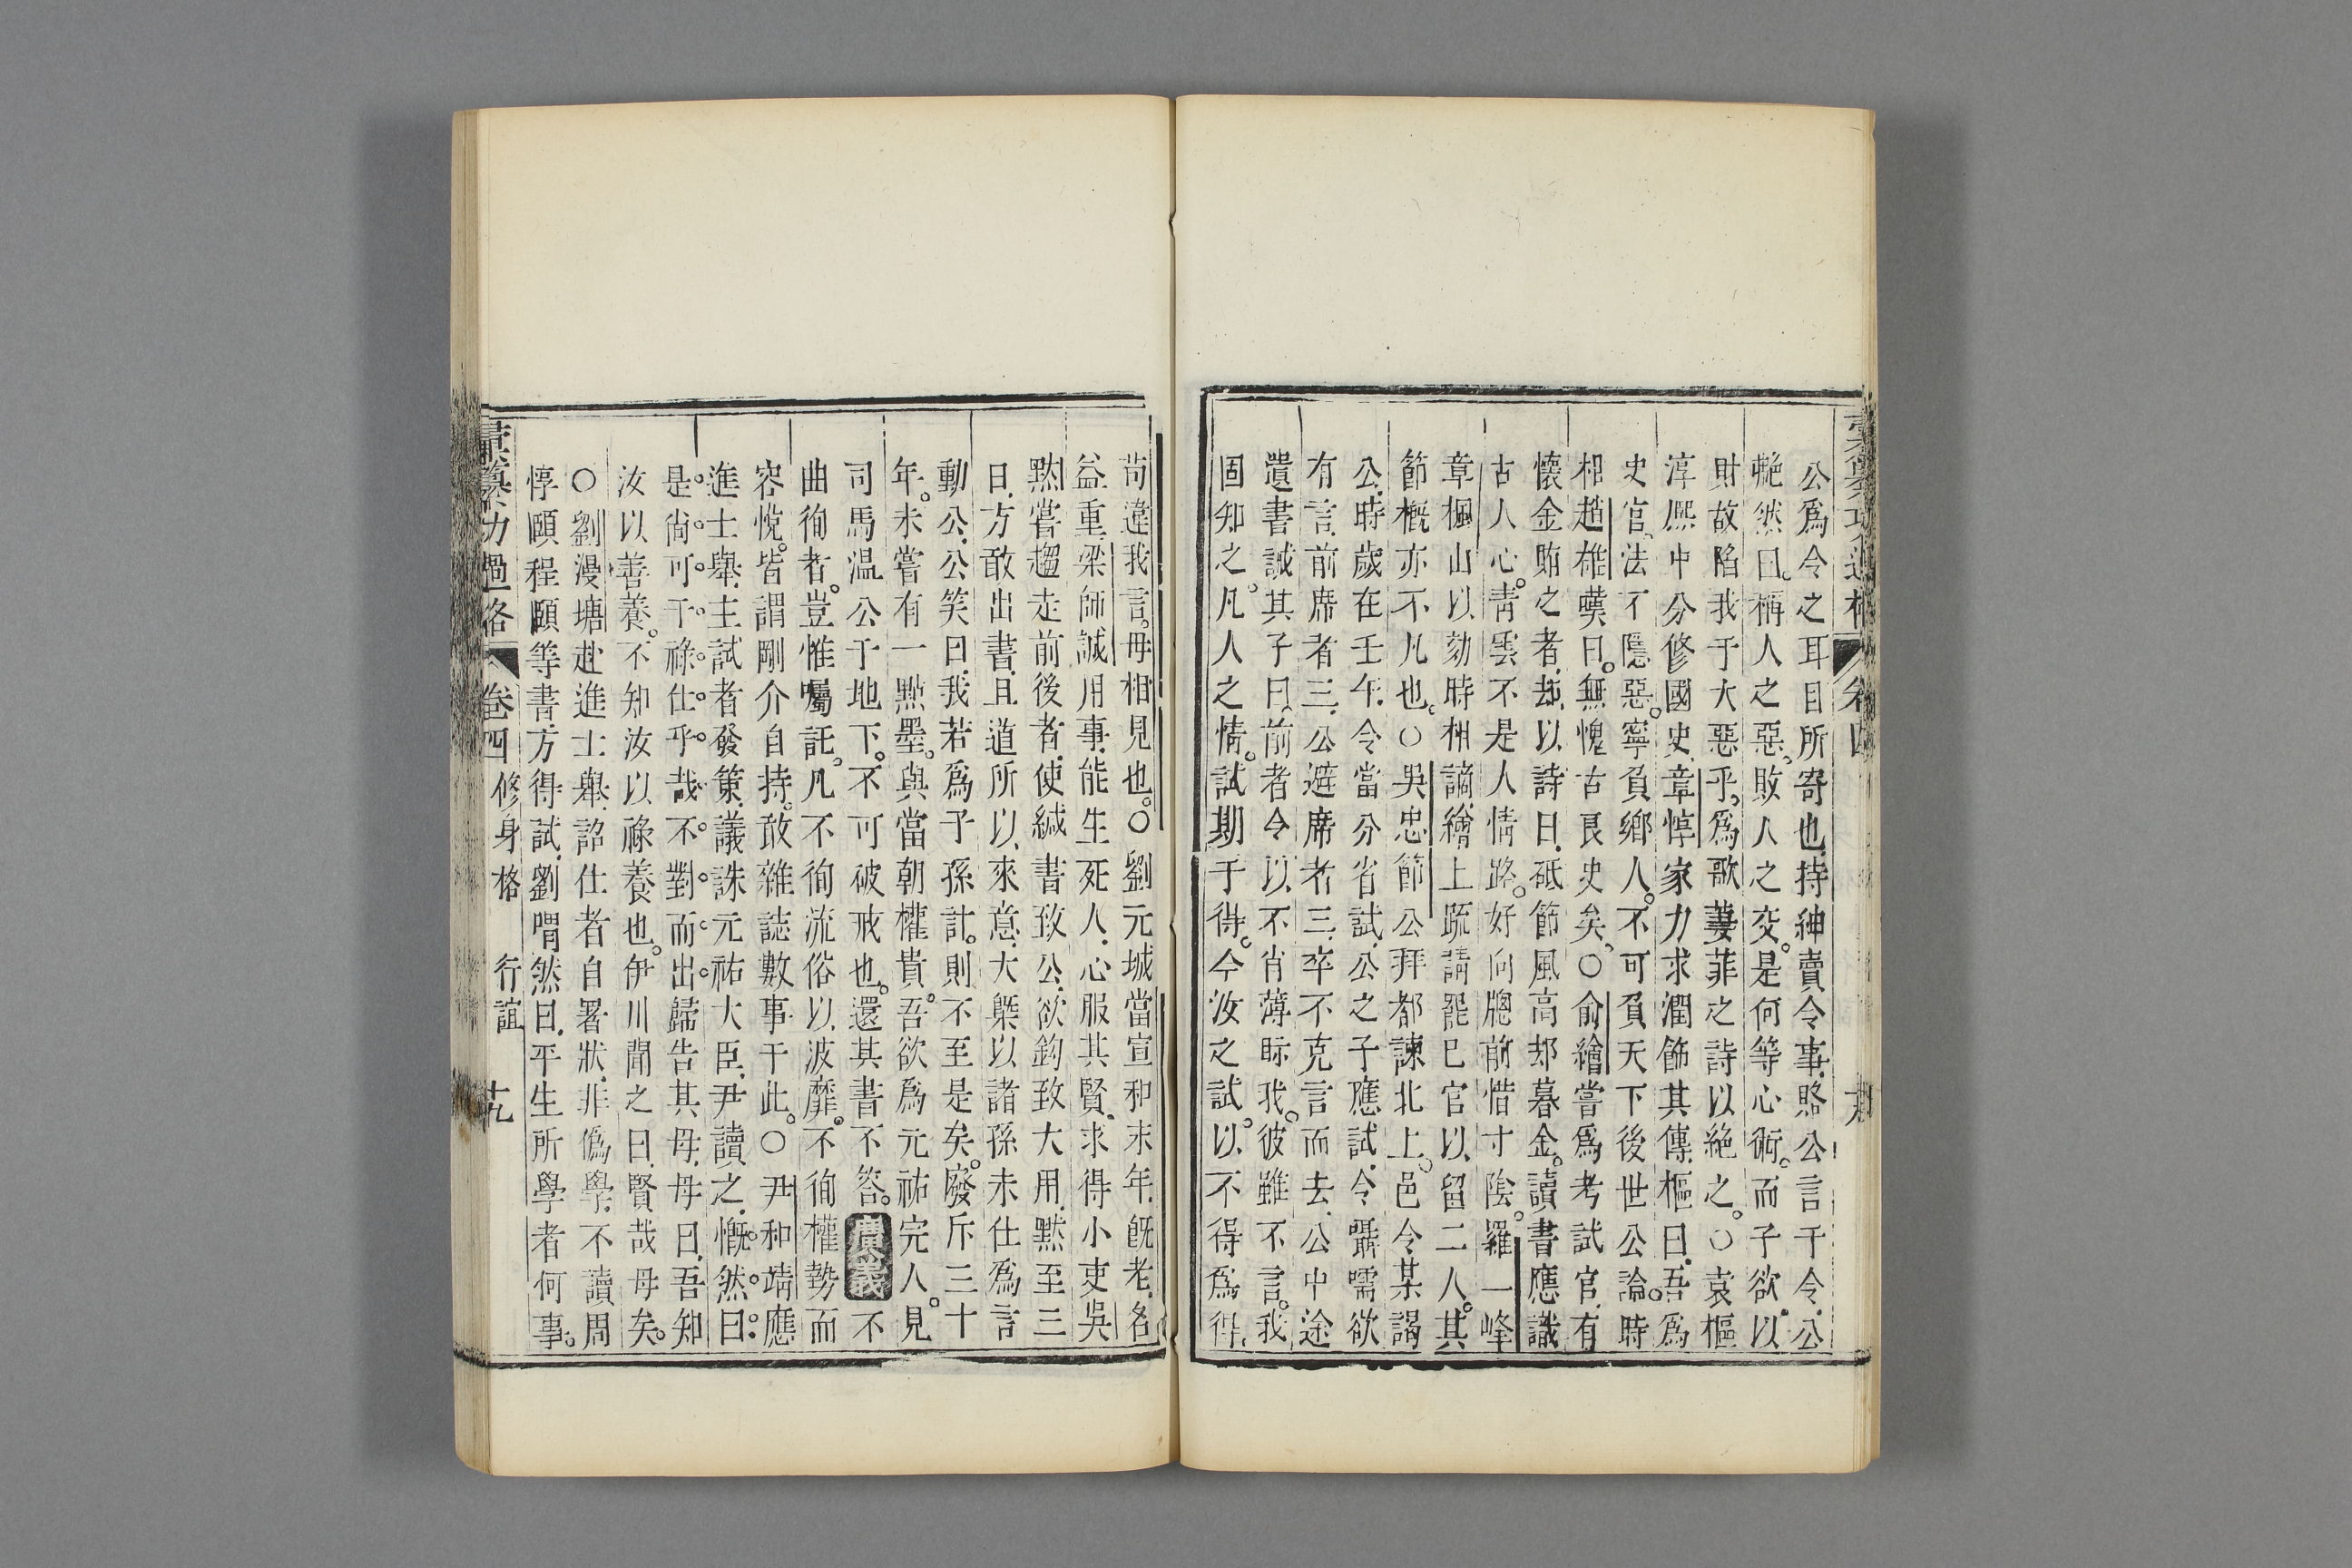 公爲令之耳目所寄也持紳賣令事賂公言于令公
艴然曰稱人之惡敗人之交是何等心術而子欲以
財故陷我于大惡乎爲歌萋菲之詩以絶之○袁樞
淳熙中分修國史章惇家力求潤飾其傳樞曰吾爲
史官法不隱惡寧負鄉人不可負天下後世公論時
相趙雄嘆曰無愧古良史矣○俞繪嘗爲考試官有
懷金賄之者却以詩曰砥節風高却暮金讀書應識
古人心靑雲不是人情路好向牕前惜寸陰羅一峰
章楓山以劾時相謫繪上疏請罷巳官以留二人其
節槪亦不凡也○吳忠節公拜都諫北上邑令某謁
公時歲在壬午令當分省試公之子應試令囁嚅欲
有言前席者三公避席者三卒不克言而去公中途
遺書誡其子曰前者令以不肖薄眎我彼雖不言我
固知之凡人之情試期于得今汝之試以不得爲得
苟違我言毋相見也○劉元城當宣和末年旣老名
益重梁師誠用事能生死人心服其賢求得小吏吳
黙嘗趨走前後者使緘書致公欲鈎致大用黙至三
日方敢出書且道所以來意大槩以諸孫未仕爲言
動公公笑曰我若爲子孫計則不至是矣廢斥三十
年未嘗有一㸃墨與當朝權貴吾欲爲元祐完人見
司馬溫公于地下不可破戒也還其書不答廣義不
曲徇者豈惟囑託凡不徇流俗以波靡不徇權勢而
容悅皆謂剛介自持敢雜誌數事于此○尹和靖應
進士舉主試者發策議誅元祐大臣尹讀之慨然曰
是尚可干祿仕乎哉不對而出歸告其母母曰吾知
汝以善養不知汝以祿養也伊川聞之曰賢哉母矣
○劉漫塘赴進士舉詔仕者自署狀非僞學不讀周
惇頤程頤等書方得試劉喟然曰平生所學者何事
彙纂功過格 卷四 修身格 行誼 十九